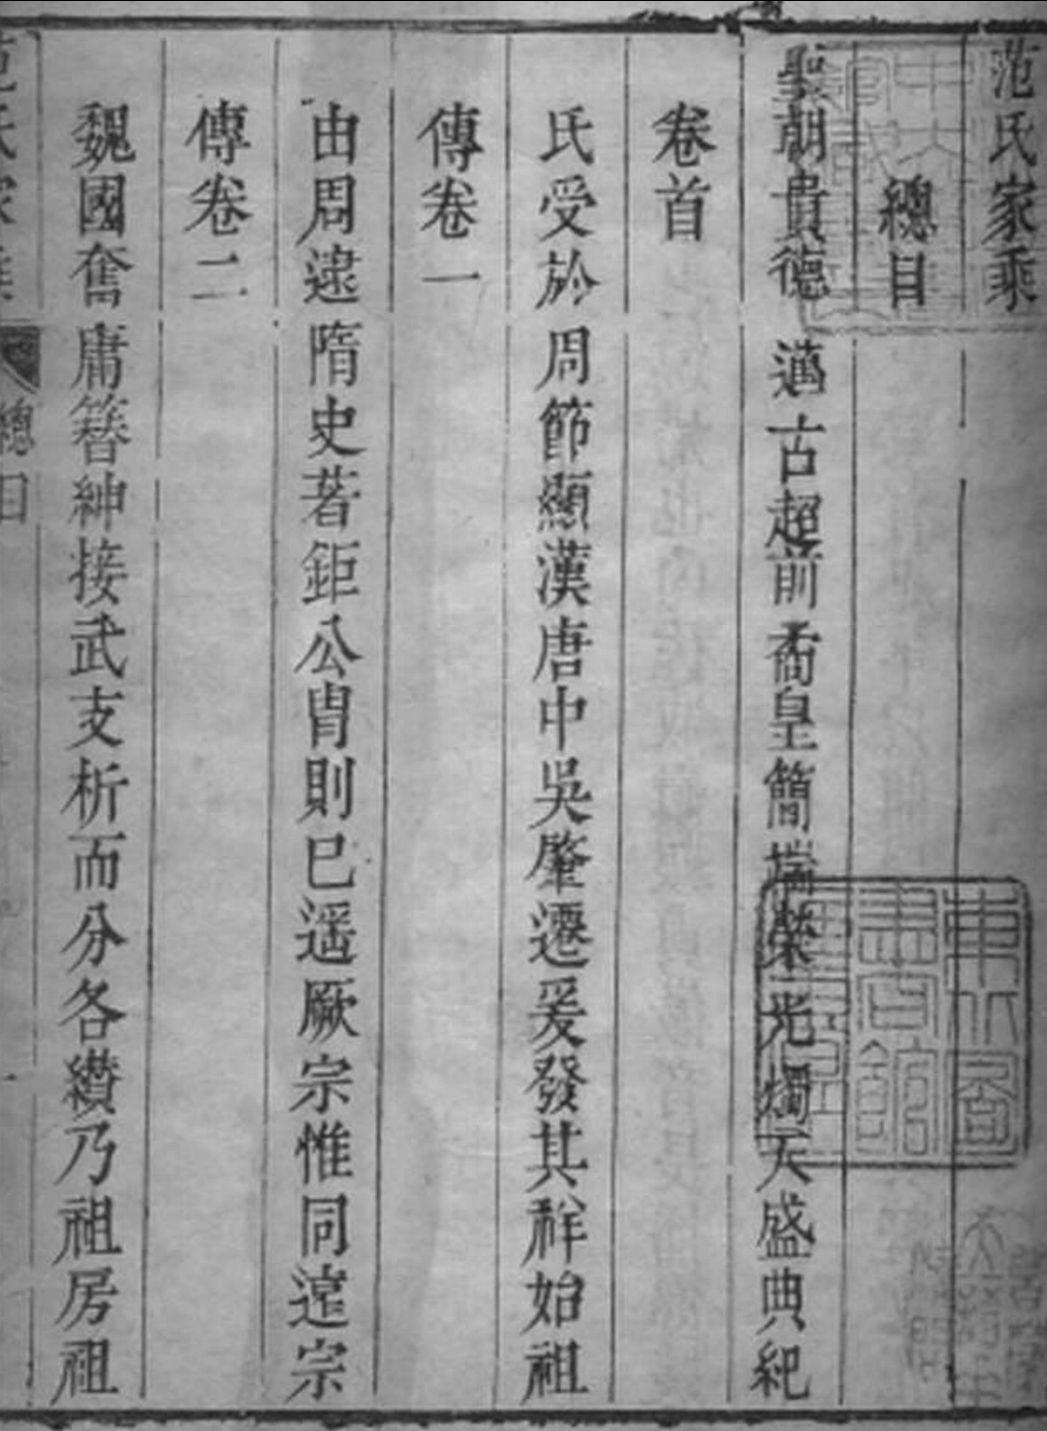 范氏家乘
總目
聖朝貴德 邁古超前 矞皇簡端 榮光燭天 盛典紀
卷首
氏受於周 節顯漢唐 中吳肇遷 爰發其祥 始祖
傳卷一
由周逮隋 史著鉅公 胄則已遥 厥宗惟同 遠宗
傳卷二
魏國奮庸 簪紳接武 支析而分 各纘乃祖 房祖
范氏家乘 總目